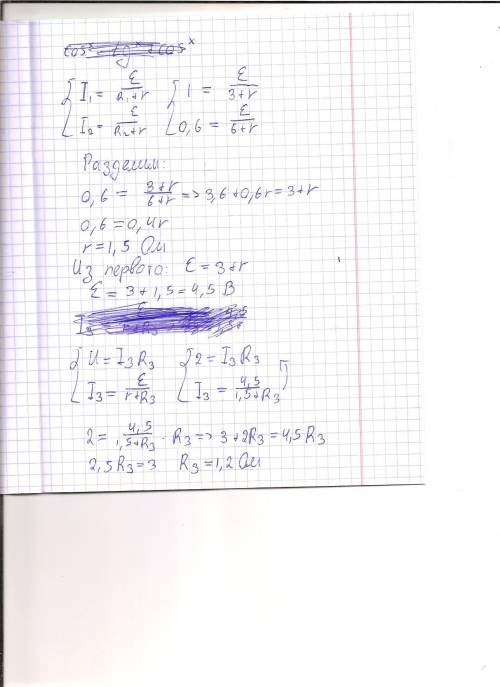 { I₁ = ε/(R₁+r) { 1 = ε/(3+r)
{ I₂ = ε/(R₂+r) { 0,6 = ε/(6+r)
Разделим:
0,6 = (3+r)/(6+r) => 3,6+0,6r=3+r
0,6=0,4r
r=1,5 Ом
Из первого: ε=3+r
ε=3+1,5=4,5 В
{ U=I₃R₃ { 2=I₃R₃
{ I₃ = ε/(r+R₃) { I₃ = 4,5/(1,5+R₃)
2 = 4,5/(1,5+R₃) · R₃ => 3+2R₃=4,5R₃
2,5R₃=3 R₃=1,2 Ом